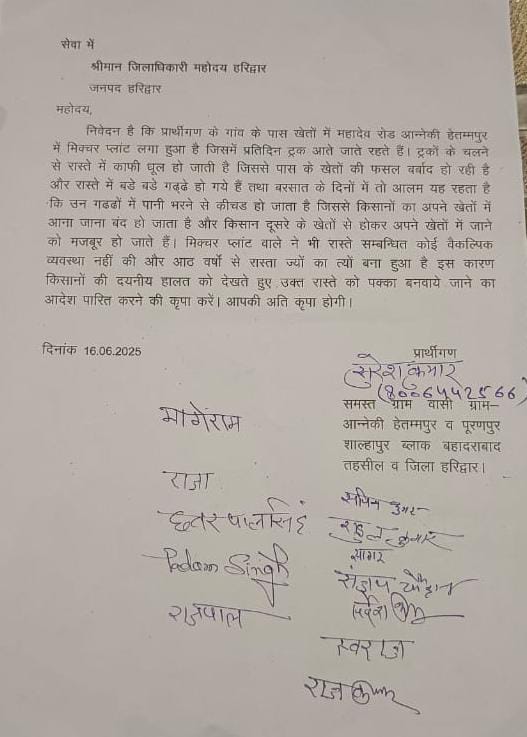 सेवा में
श्रीमान जिलाधिकारी महोदय हरिद्वार
जनपद हरिद्वार
महोदय,
निवेदन है कि प्रार्थीगण के गांव के पास खेतों में महादेव रोड आन्नेकी हेतम्मपुर
में मिक्चर प्लांट लगा हुआ है जिसमें प्रतिदिन ट्रक आते जाते रहते हैं। ट्रकों के चलने
से रास्ते में काफी धूल हो जाती है जिससे पास के खेतों की फसल बर्बाद हो रही है
और रास्ते में बडे बडे गढ्ढे हो गये हैं तथा बरसात के दिनों में तो आलम यह रहता है
कि उन गढढों में पानी भरने से कीचड हो जाता है जिससे किसानों का अपने खेतों में
आना जाना बंद हो जाता है और किसान दूसरे के खेतों से होकर अपने खेतों में जाने
को मजबूर हो जाते हैं। मिक्चर प्लांट वाले ने भी रास्ते सम्बन्धित कोई वैकल्पिक
व्यवस्था नहीं की और आठ वर्षो से रास्ता ज्यों का त्यों बना हुआ है इस कारण
किसानों की दयनीय हालत को देखते हुए उक्त रास्ते को पक्का बनवाये जाने का
आदेश पारित करने की कृपा करें। आपकी अति कृपा होगी।
दिनांक 16.06.2025
प्रार्थीगण
सुरेश कुमार
(8006442566)
समस्त ग्राम वासी ग्राम–
आन्नेकी हेतम्मपुर व पूरणपुर
शाल्हापुर ब्लाक बहादराबाद
तहसील व जिला हरिद्वार।
मागेराम
राजा
छतरपालसिंह
Padam Singh
राजपाल
सचिन कुमार
राहुल कुमार
सागर
संजय चौहान
स्वराज
राजकुमार